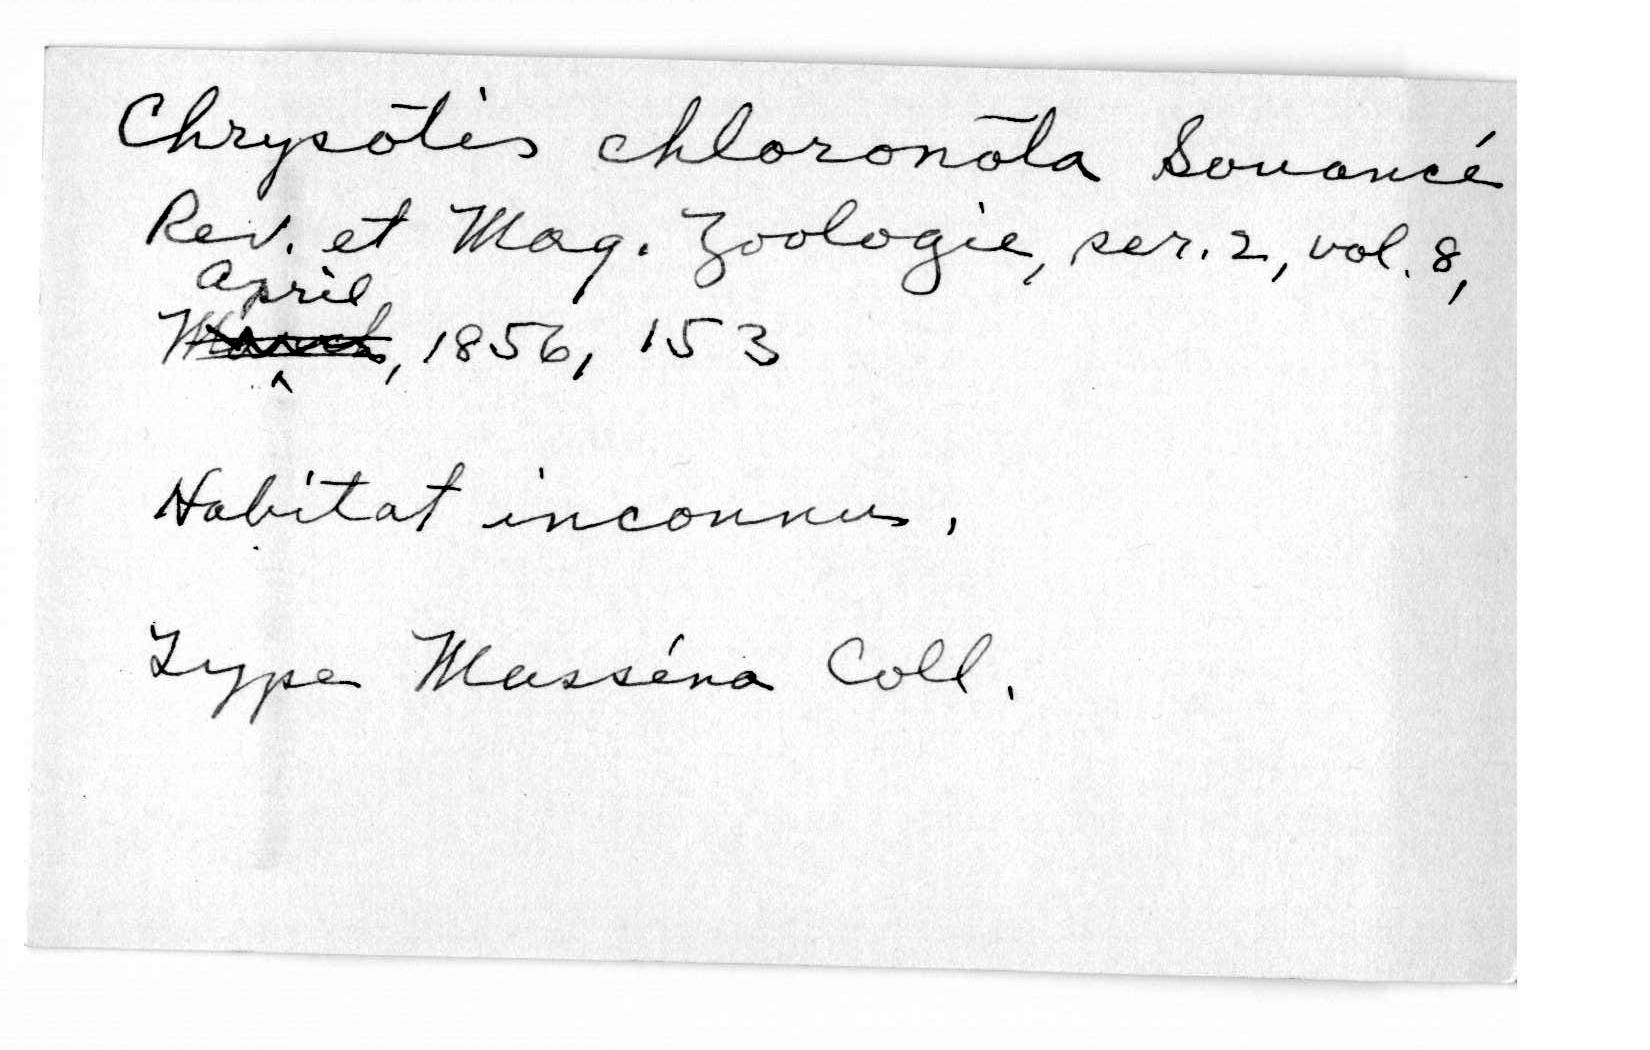 Chrysōtis chloronōta Souancé
Rev. et Mag. Zoologie, ser. 2, vol. 8,
April
March, 1856, 153
Habitat inconnus.
Type Masséna Coll.